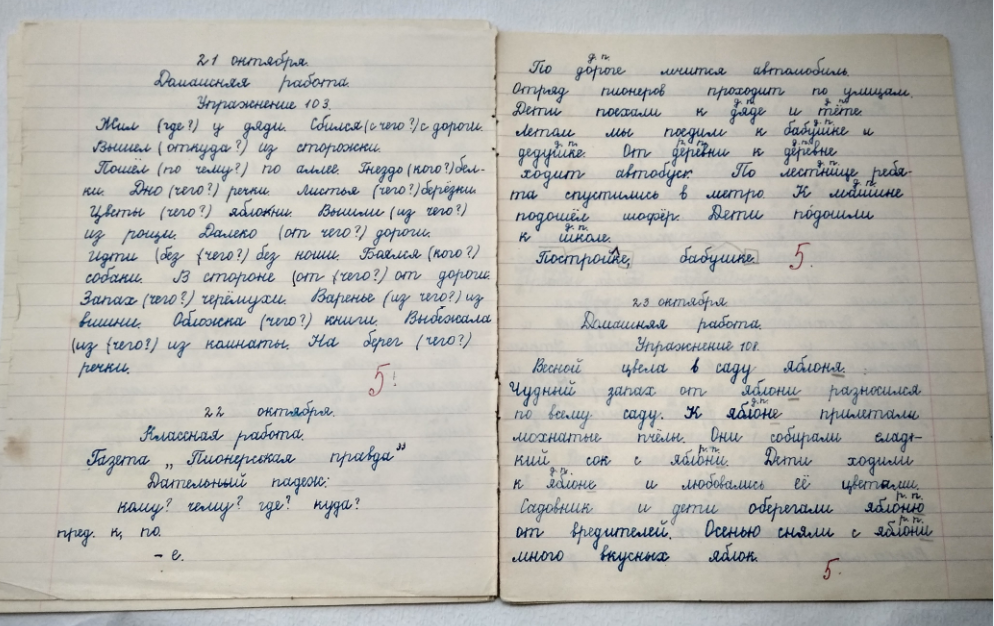 21 октября.
Домашняя работа.
Упражнение 103.
Жил (где?) у дяди. Сбился (с чего?) с дороги.
Вышел (откуда?) из сторожки.
Пошёл (по чему?) по аллее. Гнездо (кого?) бел-
ки. Дно (чего?) речки. Листья (чего?) берёзки.
Цветы (чего?) яблони. Вышли (из чего?)
из рощи. Далеко (от чего?) дороги.
Идти (без (чего?) без ноши. Боялся (кого?)
собаки. В стороне (от (чего?) от дороги.
Запах (чего?) черёмухи. Варенье (из чего?) из
вишни. Обложка (чего?) книги. Выбежала
(из (чего?) из комнаты. На берег (чего?)
речки.
5!
22 октября.
Классная работа.
Газета „Пионерская правда”
Дательный падеж:
кому? чему? где? куда?
пред. к, по.
- е.
д.п.
По дороге мчится автомобиль.
Отряд пионеров проходит по улицам.
д.п. д.п.
Дети поехали к дяде и тёте.
д.п.
Летом мы поедим к бабушке и
д.п. р.п. д.п.
дедушке. От деревни к деревне
д.п.
ходит автобус. По лестнице ребя-
д.п.
та спустились в метро. К машине
подошёл шофёр. Дети подошли
д.п.
к школе.
Постройке, бабушке. 5.
23 октября.
Домашняя работа.
Упражнение 108.
Весной цвела в саду яблоня.
Чудный запах от яблони разносился
д.п.
по всему саду. К яблоне прилетали
мохнатые пчёлы. Они собирали слад-
р.п.
кий сок с яблони. Дети ходили
д.п.
к яблоне и любовались её цветами.
р.п.
Садовник и дети оберегали яблоню
р.п.
от вредителей. Осенью сняли с яблони
много вкусных яблок.
5.